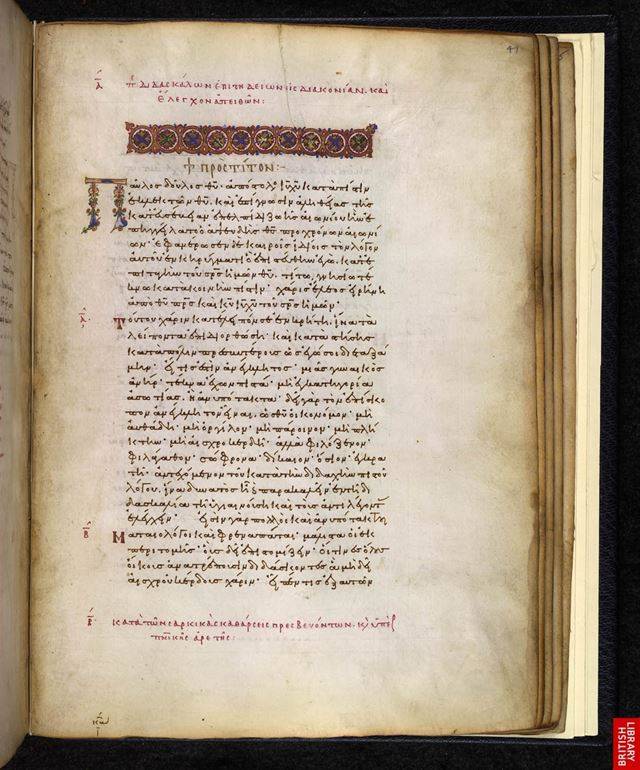 41
Α Π διδασκάλων ἐπιτηδείων εἰς διακονίαν. καὶ
ἔλεγχον ἀπειθῶν:
ΠΡΟΣ ΤΙΤΟΝ:-
Παῦλος δοῦλος θυ. ἀπόστολος ιυ χυ κατὰ πίστιν
ἐκλεκτῶν θυ. καὶ ἐπίγνωσιν ἀληθείας τῆς
κατ' εὐσέβειαν ἐπ' ἐλπίδι ζωῆς αἰωνίου ἣν ἐ
πηγγείλατο ὁ ἀψευδὴς θς πρὸ χρόνων αἰωνί
ων· ἐφανέρωσεν δὲ καιροῖς ἰδίοις τὸν λόγον
αὐτοῦ ἐν κηρύγματι ὃ ἐπιστεύθην ἐγώ. κατ' ἐ
πιταγὴν τοῦ σρς ἡμῶν θυ. τίτω γνησίω τέ
κνω κατὰ κοινὴν πίστιν· χάρις ἔλεος εἰρήνη
ἀπὸ θυ πρς καὶ κυ ιυ χυ τοῦ σρς ἡμῶν·
Α Τούτου χάριν κατέλειπόν σε ἐν κρήτη. ἵνα τὰ
λείποντα ἐπιδιορθώση· καὶ καταστήσης
κατὰ πόλιν πρεσβυτέρους ὡς ἐγώ σοι διεταξά
μην· εἴ τις ἐστὶν ἀνέγκλητος· μιᾶς γυναικὸς
ἀνήρ· τέκνα ἔχων πιστά· μὴ ἐν κατηγορία
ἀσωτίας. ἢ ἀνυπότακτα· δεῖ γὰρ τὸν ἐπίσκο
πον ἀνέγκλητον εἶναι. ὡς θυ οἰκονόμον· μὴ
αὐθάδη· μὴ ὀργίλον· μὴ πάροινον· μὴ πλή
κτην· μὴ αἰσχροκερδῆ· ἀλλὰ φιλόξενον·
φιλάγαθον· σώφρονα· δίκαιον· ὅσιον· ἐγκρα
τῆ· ἀντεχόμενον τοῦ κατὰ τὴν διδαχὴν πιστοῦ
λόγου. ἵνα δυνατὸς ἦ καὶ παρακαλεῖν ἐν τῆ δι
δασκαλία τῆ ὑγιαινούση καὶ τοὺς ἀντιλέγοντ
ἐλέγχειν· εἰσὶν γὰρ πολλοὶ καὶ ἀνυπότακτοι
Β Ματαιολόγοι καὶ φρεναπάται· μάλιστα οἱ ἐκ
περιτομῆς· οὓς δεῖ ἐπιστομίζειν· οἵτινες ὅλους
οἴκους ἀνατρέπουσιν διδάσκοντες ἃ μὴ δεῖ
αἰσχροῦ κέρδους χάριν· εἶπέν τις ἐξ αὐτῶν
Β Κατὰ τῶν σαρκικὰς καθάρσεις πρεσβευόντων. κ ὑπὲρ
πνικῆς ἀρετῆς:
BRITISH
LIBRARY